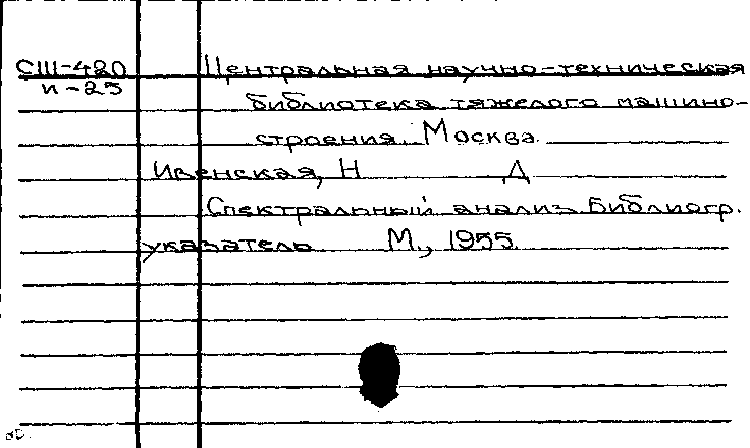 СIII-420 Центральная научно-техническая
и-23 библиотека тяжелого машино-
строения. Москва.
Ивенская, Н Д
Спектральный анализ. Библиогр.
указатель М., 1955